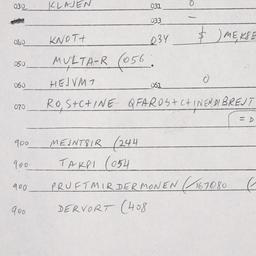 030 KLAJEN 031 0
033 —
040 KNOTT 034 $ ) MEKSE
050 MULTA-R (056.
060 HEJVMT 061 0
070 RO,S+C+INE QFAROS+C+INEMDIBREJT
= D
900 MEINTSIR (244
900 TAKPI (054
900 PRUFTMIRDERMONEN (167080 (
900 DERVORT (408